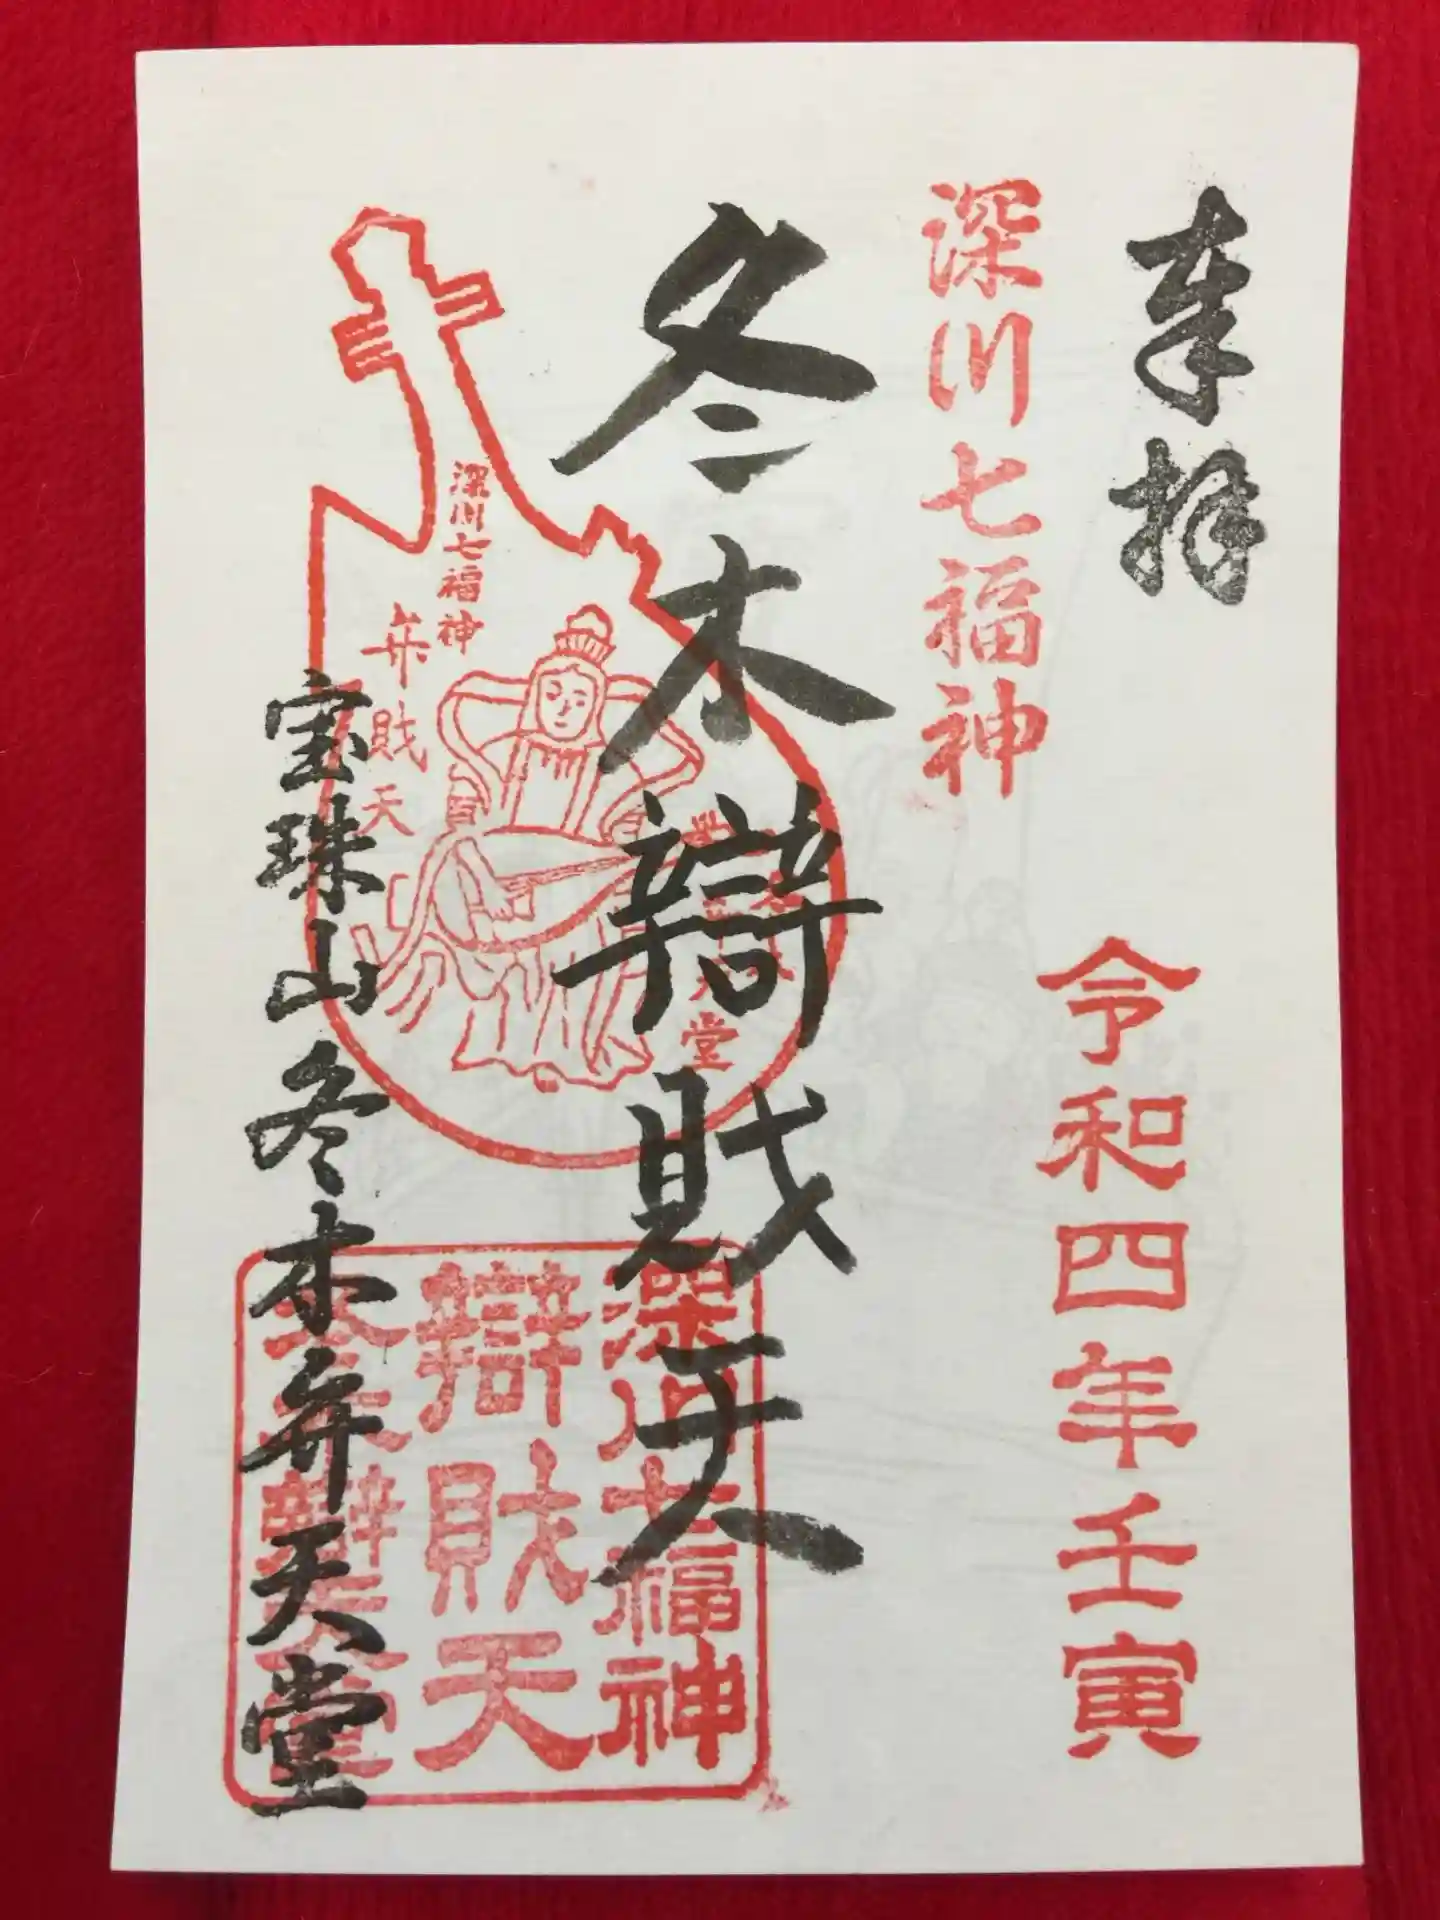 奉拝
深川七福神
令和四年壬寅
冬木辯財天
深川七福神
弁財天
宝珠山冬木弁天堂
深川七福神
辯財天